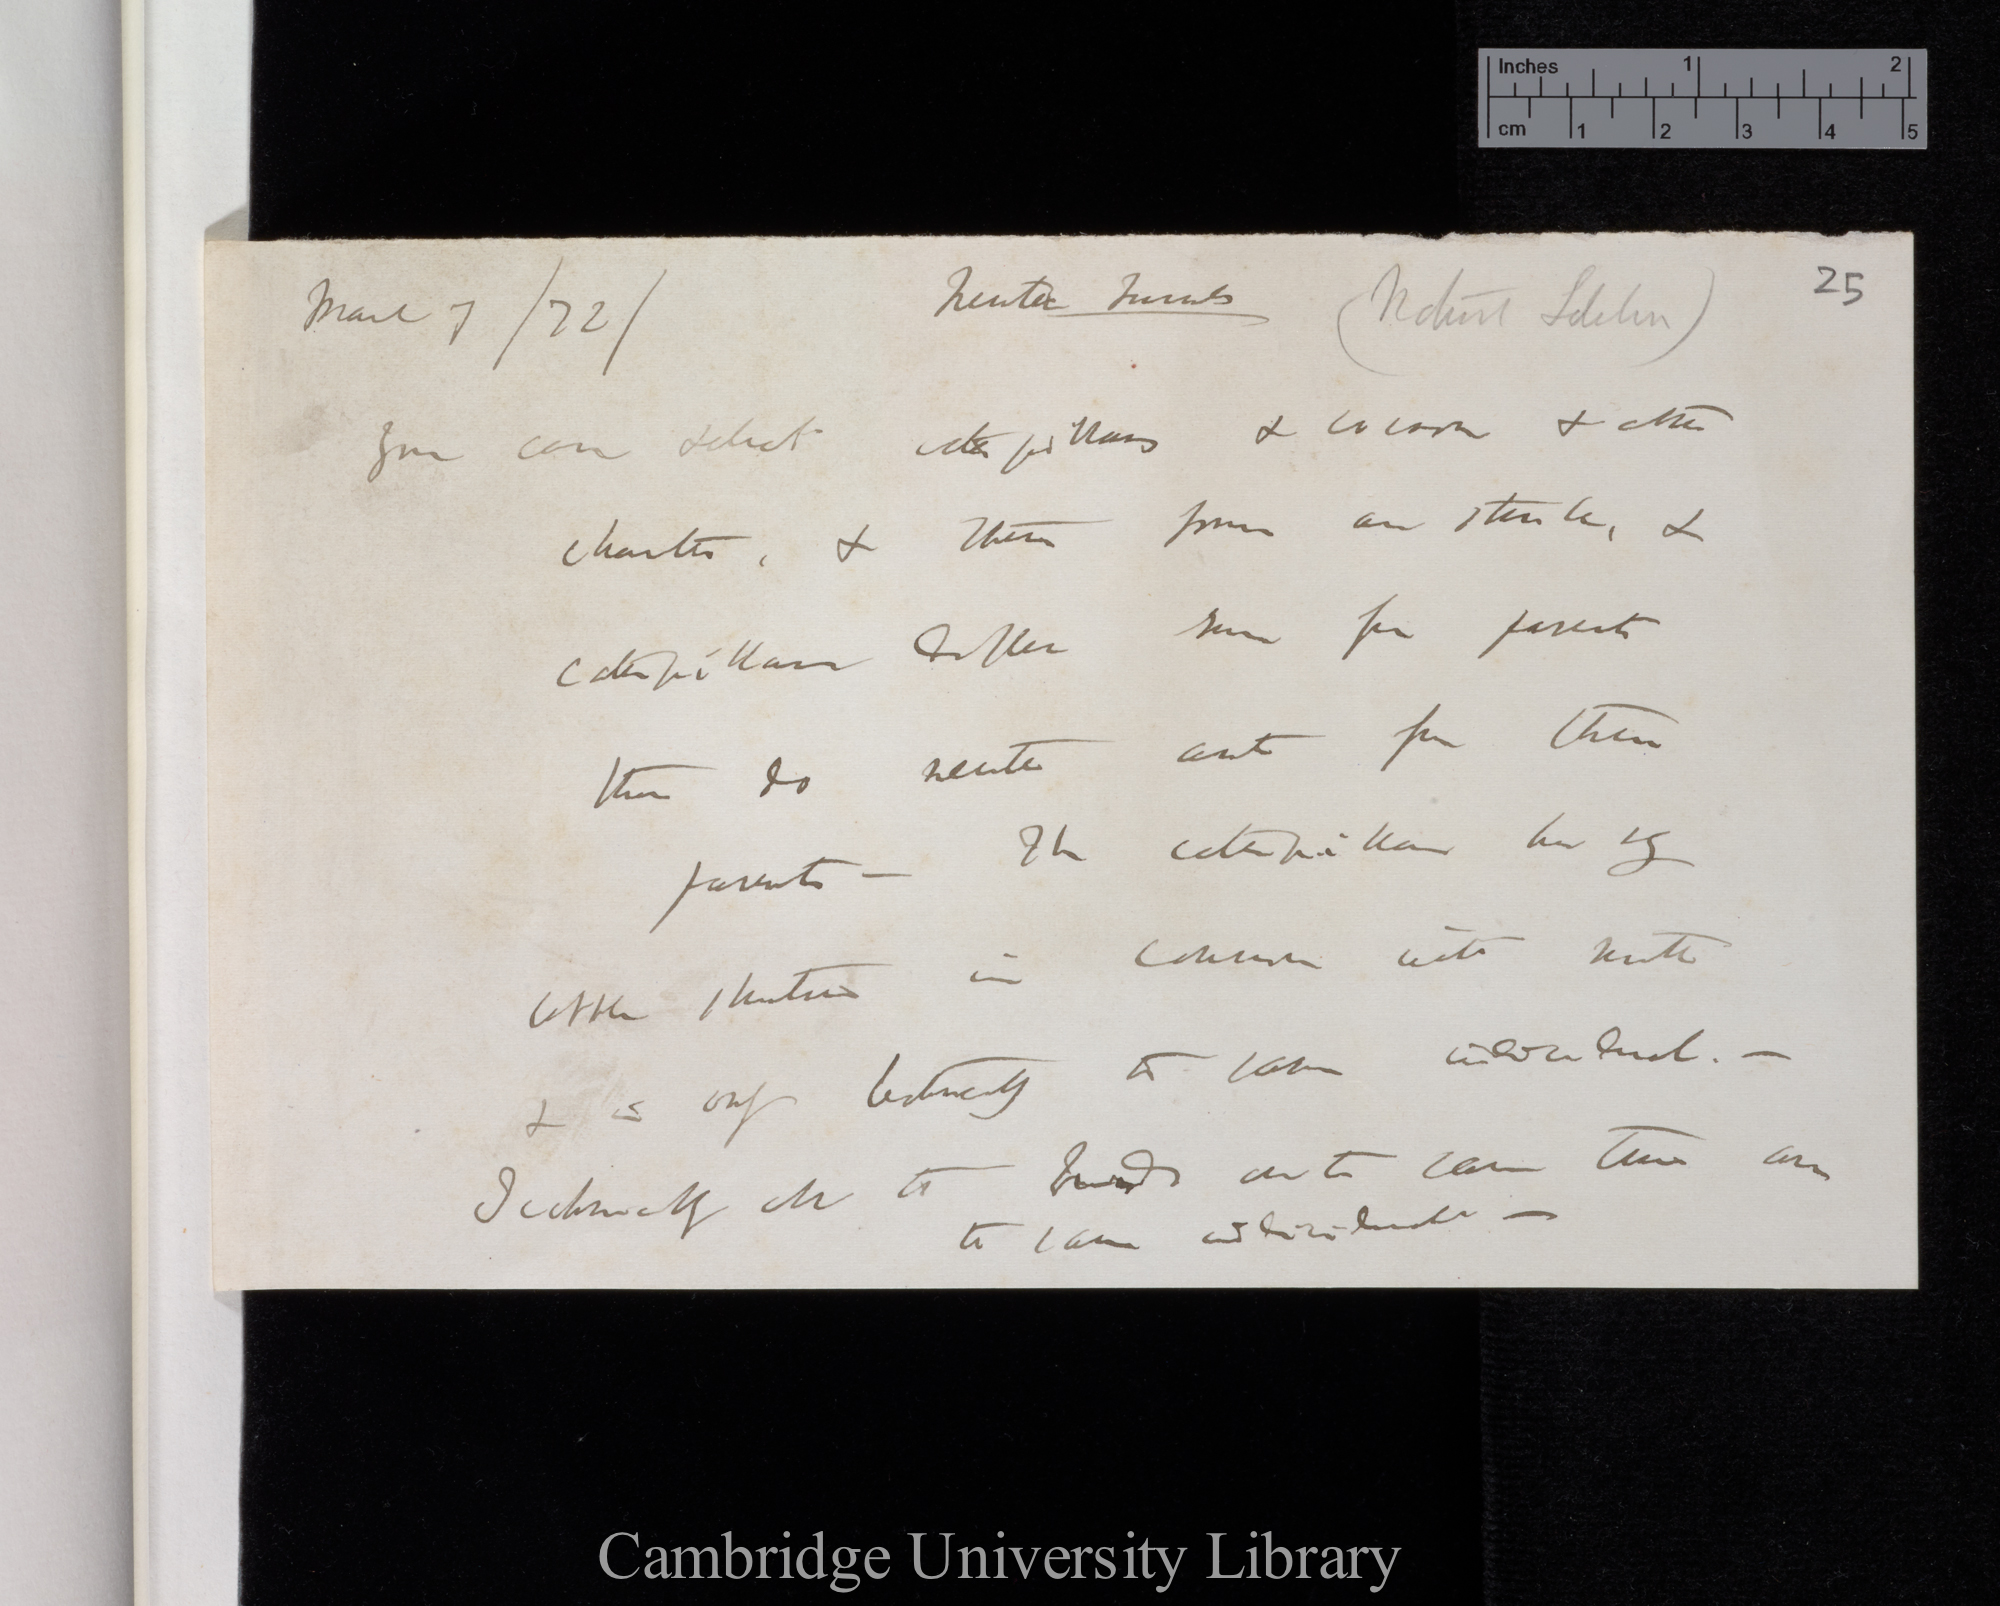 Inches 1 2
cm 1 2 3 4 5
25
March 7 /72/ Neuter Insects (Natural Selection)
You can select caterpillars & cocoon & other
character, & these forms are sterile, &
caterpillars differ more from parents
than do neuter ants from their
parents — The caterpillar having
little structure in common with
& is only technically the same individual. —
Technically all the buds on the same tree are
the same individual —
Cambridge University Library